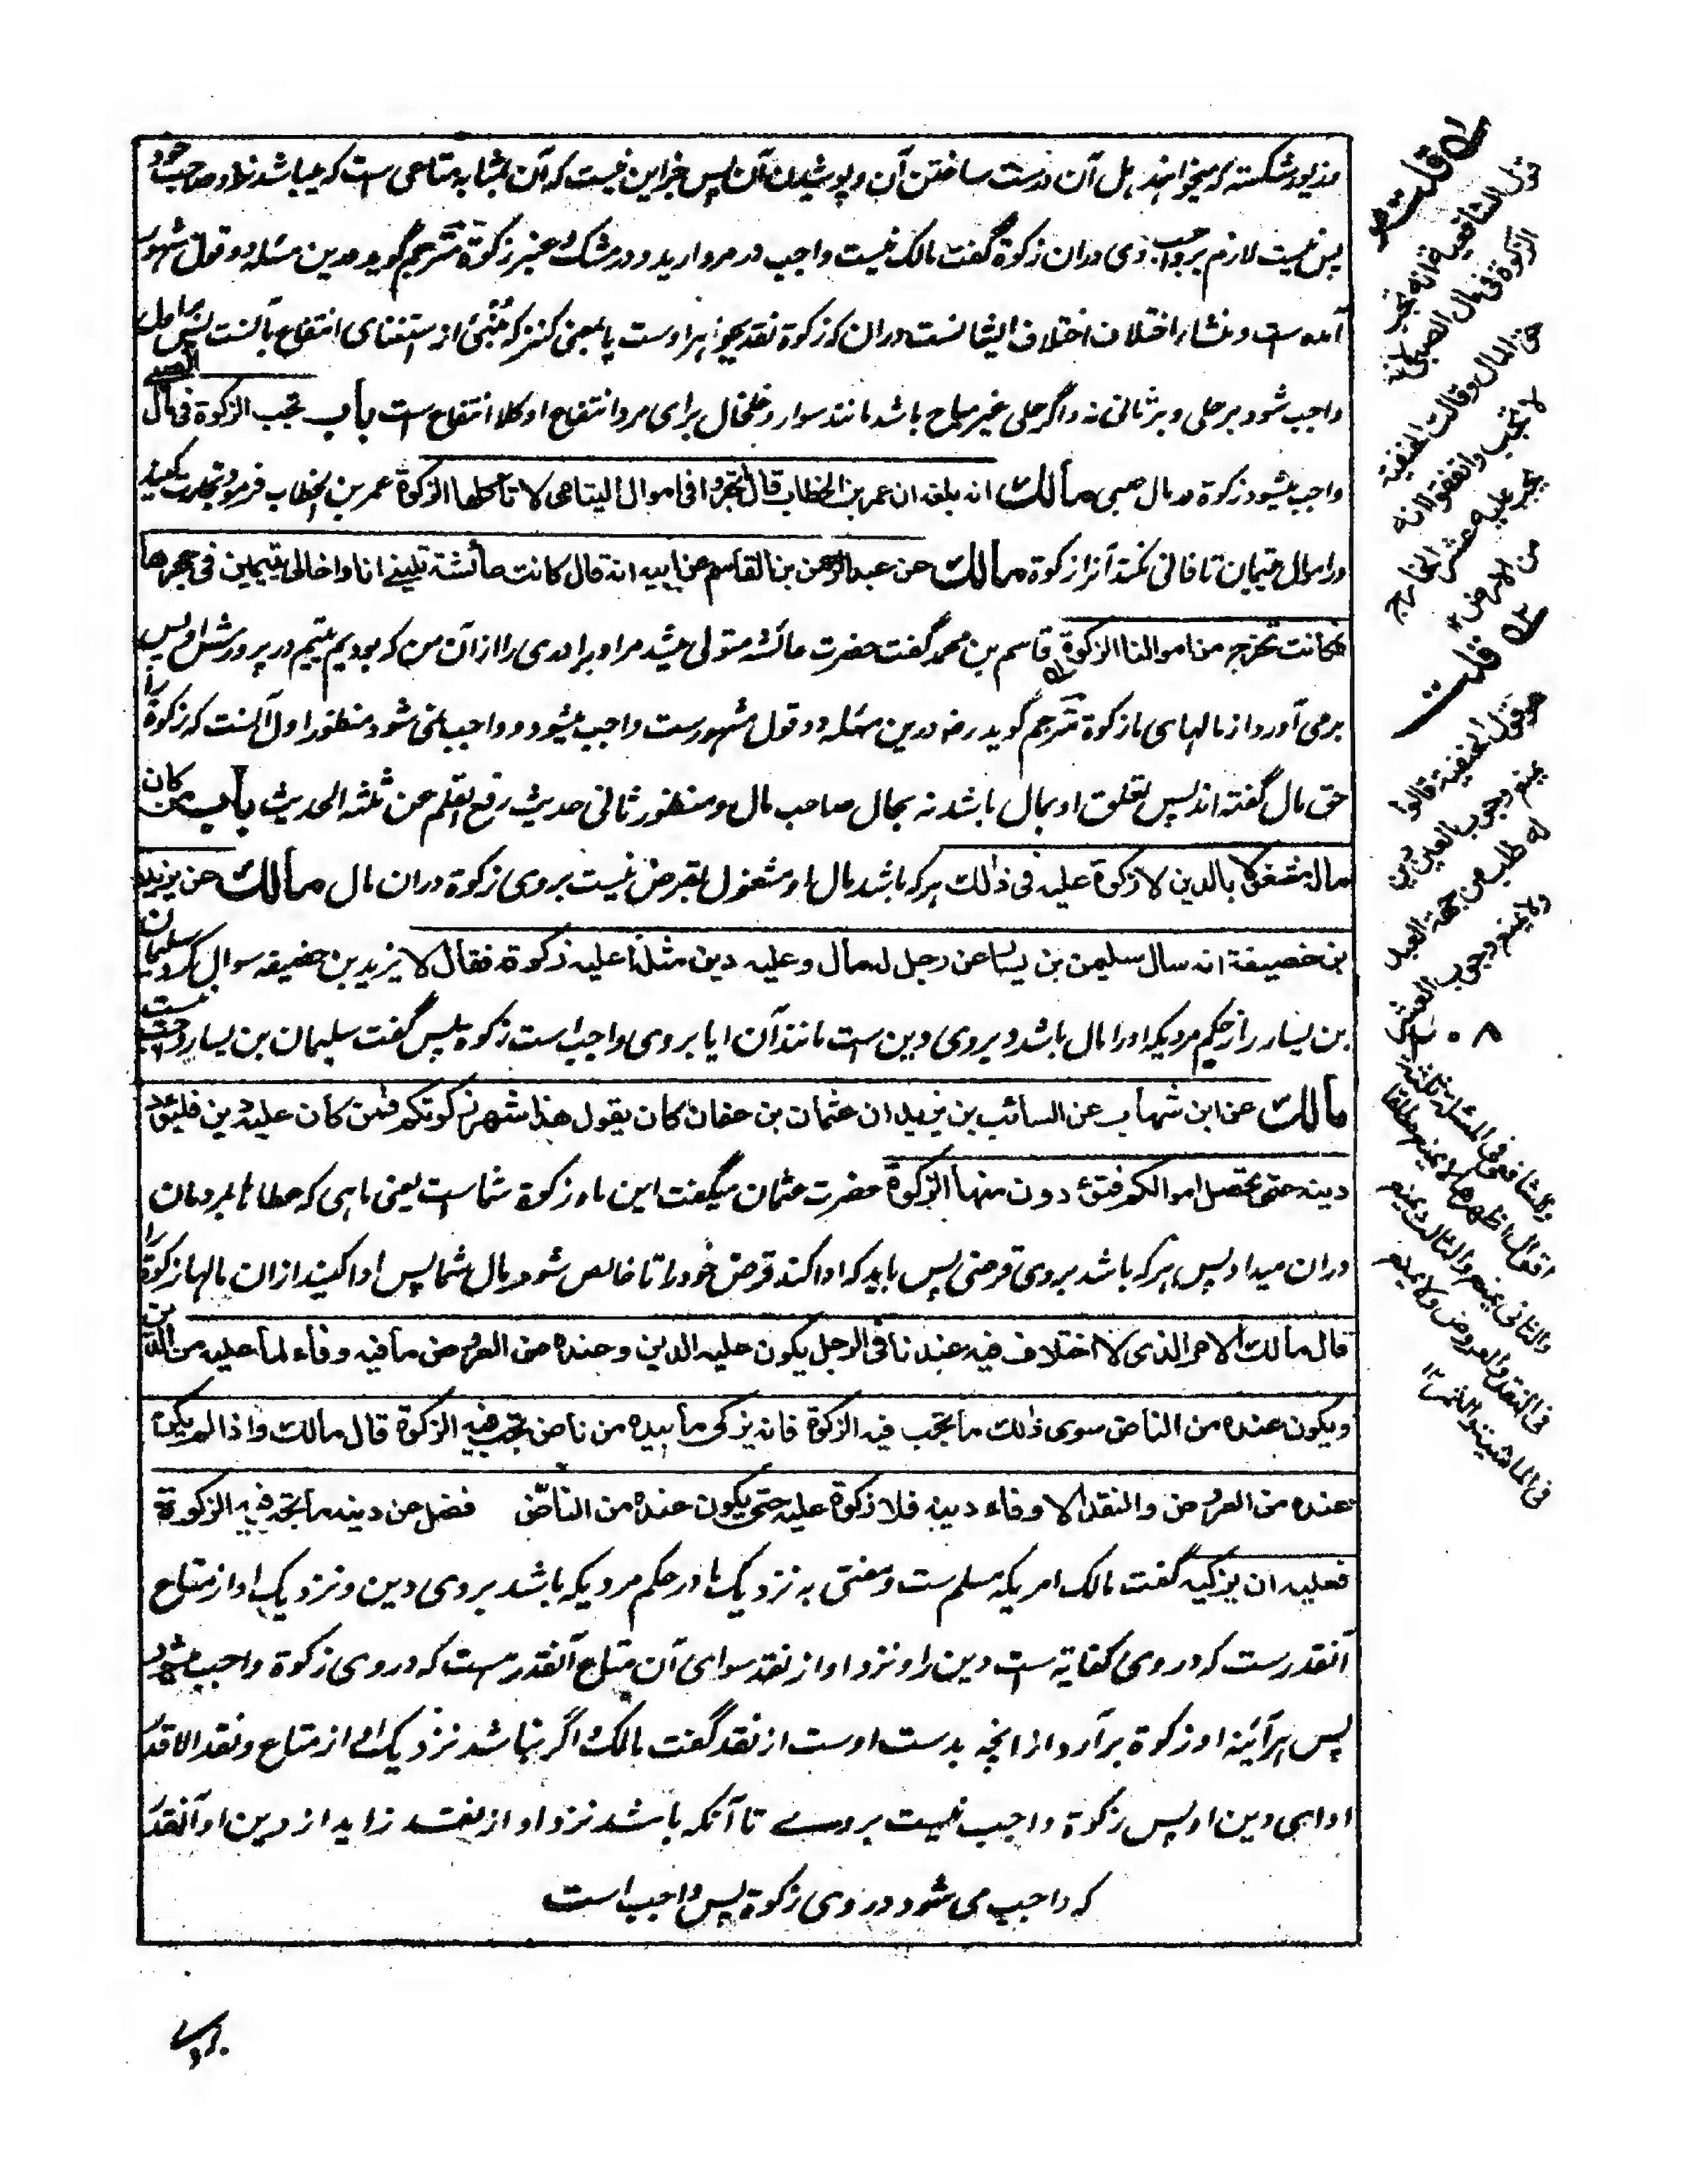 و زیور شکسته که میخواهند اهل آن درست ساختن آن و پوشیدن آن پس جز این نیست که آن بمثابه متاعی است که میباشد نزد صاحب خود
پس نیست لازم بر صاحب وی دران زکوة گفت مالک نیست واجب در مروارید و در مشک و عنبر زکوة مترجم گوید درین مسئله دو قول مشهور
آمده است و منشاء اختلاف اختلاف ایشانست دران که زکوة نقد بجوهر اوست یا بمعنی کنز که مُنبئ از استغنای انتفاع بآنست پس بر اول
واجب شود بر حلی و بر ثانی نه و اگر حلی غیر مباح باشد مانند سوار و خلخال برای مرد انتفاع او کلا انتفاع است باب تجب الزکوة فی مال الصبی
واجب میشود زکوة در مال صبی مالك انه بلغه ان عمر بن الخطاب قال اتجروا فی اموال الیتامی لا تاکلها الزکوة عمر بن الخطاب فرمود تجارت بکنید
در اموال یتیمان تا فانی نکند آنرا زکوة مالك عن عبد الرحمن بن القاسم عن ابیه انه قال کانت عائشة تلینی انا و اخا لی یتیمین فی حجرها
فکانت تخرج من اموالنا الزکوة قاسم بن محمد گفت حضرت عائشه متولی میشد مرا و برادری را از آن من که بودیم یتیم در پرورش او پس
برمی آورد از مالهای ما زکوة مترجم گوید رض درین مسئله دو قول مشهورست واجب میشود و واجب نمی شود منظور اول آنست که زکوة را
حق مال گفته اند پس تعلق او بمال باشد نه بحال صاحب مال و منظور ثانی حدیث رفع القلم عن ثلثه الحدیث باب من کان
ماله مشغولا بالدین لا زکوة علیه فی ذلك هر که باشد مال او مشغول بقرض نیست بر وی زکوة دران مال مالك عن یزید
بن خصیفة انه سال سلیمن بن یسار عن رجل له مال و علیه دین مثله أ علیه زکوة فقال لا یزید بن خصیفه سوال کرد سلیمان
بن یسار را از حکم مردیکه او را مال باشد و بر وی دین ست مانند آن ایا بر وی واجب است زکوة پس گفت سلیمان بن یسار واجب نیست
مالك عن ابن شهاب عن السائب بن یزید ان عثمان بن عفان کان یقول هذا شهر زکوتکم فمن کان علیه دین فلیؤد
دینه حتی تحصل اموالکم فتؤدون منها الزکوة حضرت عثمان میگفت این ماه زکوة شما است یعنی ماهی که عطاها بمردمان
دران میداد پس هر که باشد بر وی قرضی پس باید که ادا کند قرض خود را تا خالص شود مال شما پس ادا کنید ازان مالها زکوة را
قال مالك الامر الذی لا اختلاف فیه عندنا فی الرجل یکون علیه الدین و عنده من العروض ما فیه وفاء لما علیه من الدین
و یکون عنده من الناض سوی ذلك ما تجب فیه الزکوة فانه یزکی ما بیده من ناض تجب فیه الزکوة قال مالك و اذا لم یکن
عنده من العروض و النقد الا وفاء دینه فلا زکوة علیه حتی یکون عنده من الناض فضل عن دینه ما تجب فیه الزکوة
فعلیه ان یزکیه گفت مالک امریکه مسلم ست و مفتی به نزدیک ما در حکم مردیکه باشد بر وی دین و نزدیک او از متاع
آنقدرست که در وی کفایة است دین را و نزد او از نقد سوای آن متاع آنقدر هست که در وی زکوة واجب میشود
پس هر آئینه او زکوة بر آرد از انچه بدست اوست از نقد گفت مالک و اگر نباشد نزدیک او از متاع و نقد الا قدر
ادای دین او پس زکوة واجب نیست بر وے تا آنکه باشد نزد او از نقد زاید از دین او آنقدر
که واجب می شود در وی زکوة پس واجب است
بر وے
قلت
قول الشافعیة انه تجب
الزکوة فی مال الصبی لانه
حق المال و قالت الحنفیة
لا تجب و اتفقوا انه
یجب علیه عشر الخارج
من الارض ١٢
قلت
هو قول الحنفیة قالوا
یمنع وجوب العین دین
له طلب من جهة العبد
و لا یمنع وجوب العشر
و للشافعی فی المسئلة ثلثة
اقوال اظهرها لا یمنع مطلقا
و الثانی یمنع و الثالث یمنع
فی النقد و العروض و لا یمنع
فی الماشیة و الثمر ١٢